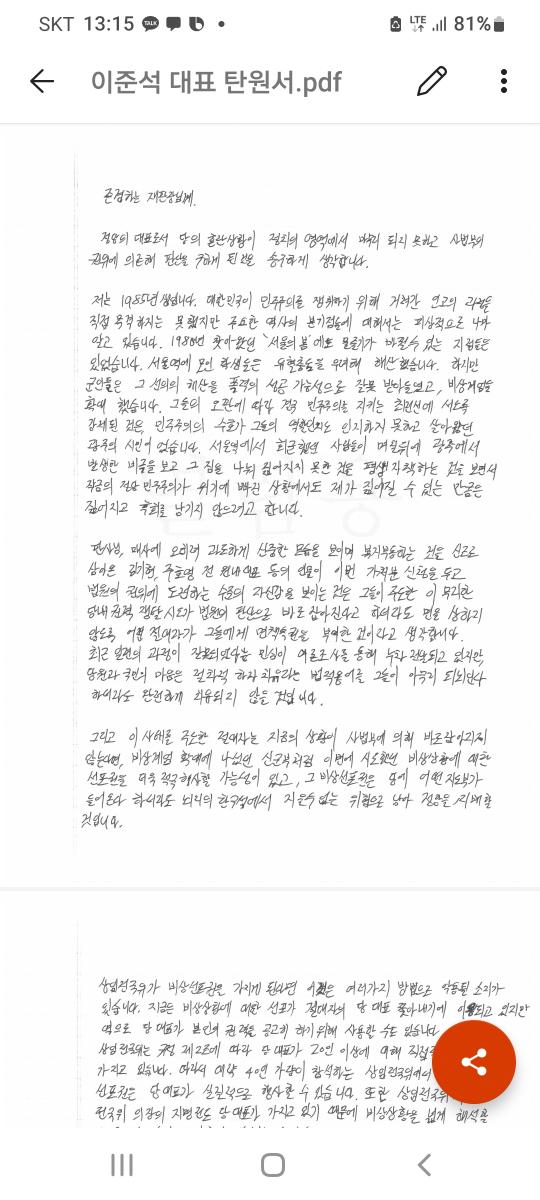 SKT 13:15 TALK LTE 81%
이준석 대표 탄원서.pdf
존경하는 재판장님께.
정당의 대표로서 당의 혼란상황이 정치의 영역에서 되지 못하고 사법부의
권위에 의존해 판단을 구하게 된 것을 송구하게 생각합니다.
저는 1985년생입니다. 대한민국이 민주주의를 쟁취하기 위해 거쳐간 연고의 과정을
직접 목격하지는 못했지만 주요한 역사의 분기점들에 대해서는 피상적으로 나마
알고 있습니다. 1980년 찾아왔던 '서울의 봄'에도 물줄기가 바뀔 수 있는 지점들은
있었습니다. 서울역에 모인 학생들은 유혈충돌을 우려해 해산했습니다. 하지만
군인들은 그 선의의 해산을 폭력의 성공 가능성으로 잘못 받아들였고, 비상계엄을
확대 했습니다. 그들의 오판에 따라 결국 민주주의를 지키는 최전선에 서도록
강제된 것은, 민주주의의 수호가 그들의 역할인지도 인지하지 못하고 살아왔던
광주의 시민이었습니다. 서울역에서 회군했던 사람들이 며칠뒤에 광주에서
발생한 비극을 보고 그 짐을 나눠 짊어지지 못한 것을 평생 자책하는 것을 보면서
작금의 정당 민주주의가 위기에 빠진 상황에서도 제가 짊어질 수 있는 만큼은
짊어지고 후회를 남기지 않으려고 합니다.
판사님, 매사에 오히려 과도하게 신중한 모습을 보이며 복지부동하는 것을 신조로
삼아온 김기현, 주호영 전 원내대표 등의 인물이 이번 가처분 신청을 두고
법원의 권위에 도전하는 수준의 자신감을 보이는 것은 그들이 주도한 이 무리한
당내 권력 쟁탈 시도가 법원의 판단으로 바로 잡아진다고 하더라도 면을 상하지
않도록 어떤 절대자가 그들에게 면책특권을 부여한 것이라고 생각합니다.
최근 일련의 과정이 잘못되었다는 민심이 여론조사를 통해 누차 전달되고 있지만,
당원과 국민의 마음은 절차적 하자 치유라는 법적용어를 그들이 아무리 되뇌인다
하더라도 완전하게 치유되지 않을 것입니다.
그리고 이 사태를 주도한 절대자는 지금의 상황이 사법부에 의해 바로잡아지지
않는다면, 비상계엄 확대에 나섰던 신군부처럼 이번에 시도했던 비상상황에 대한
선포권을 더욱 적극 행사할 가능성이 있고, 그 비상선포권은 당에 어떤 지도부가
들어온다 하더라도 뇌리의 한구석에서 지울수 없는 위협으로 남아 정당을 지배할
것입니다.
상임전국위가 비상선포권을 가지게 된다면 이것은 여러가지 방법으로 악용될 소지가
있습니다. 지금은 비상상황에 대한 선포가 절대자의 당 대표 쫓아내기에 이용되고 있지만
역으로 당 대표가 본인의 권력을 공고히 하기위해 사용할 수도 있습니다
상임전국위는 규정 제2조에 따라 당 대표가 20인 이상에 대해 직접적
가지고 있습니다. 따라서 대략 40인 가량이 참석하는 상임전국위에서
선포권은 당 대표가 실질적으로 행사할 수 있습니다. 또한 상임전국위
전국위 의장의 지명권도 당 대표가 가지고 있기 때문에 비상상황을 넓게 해석할